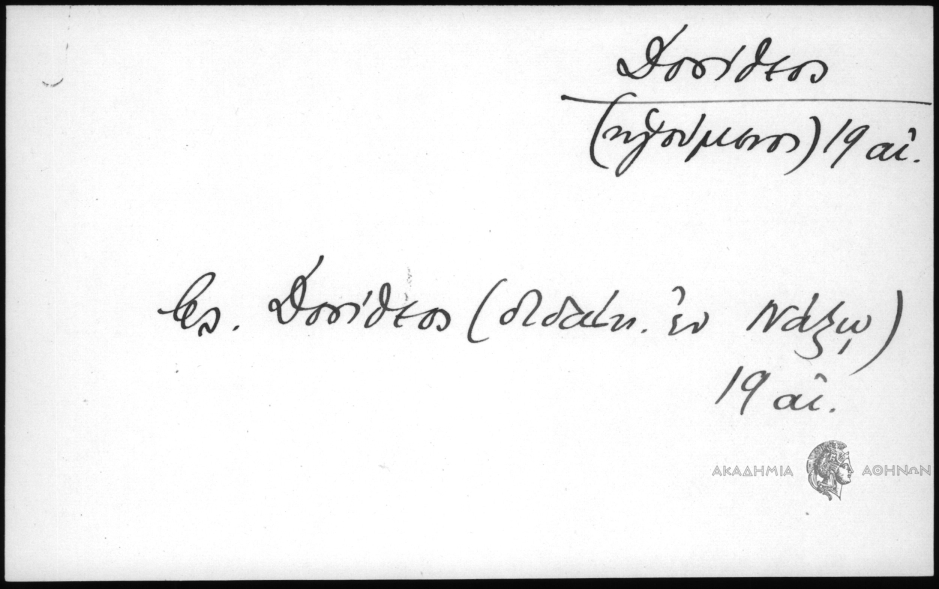 Δοσίθεος
(ηγούμενος) 19 αἰ.
βλ. Δοσίθεος (διδάσκ. ἐν Νάξῳ)
19 αἰ.
ΑΚΑΔΗΜΙΑ ΑΘΗΝΩΝ